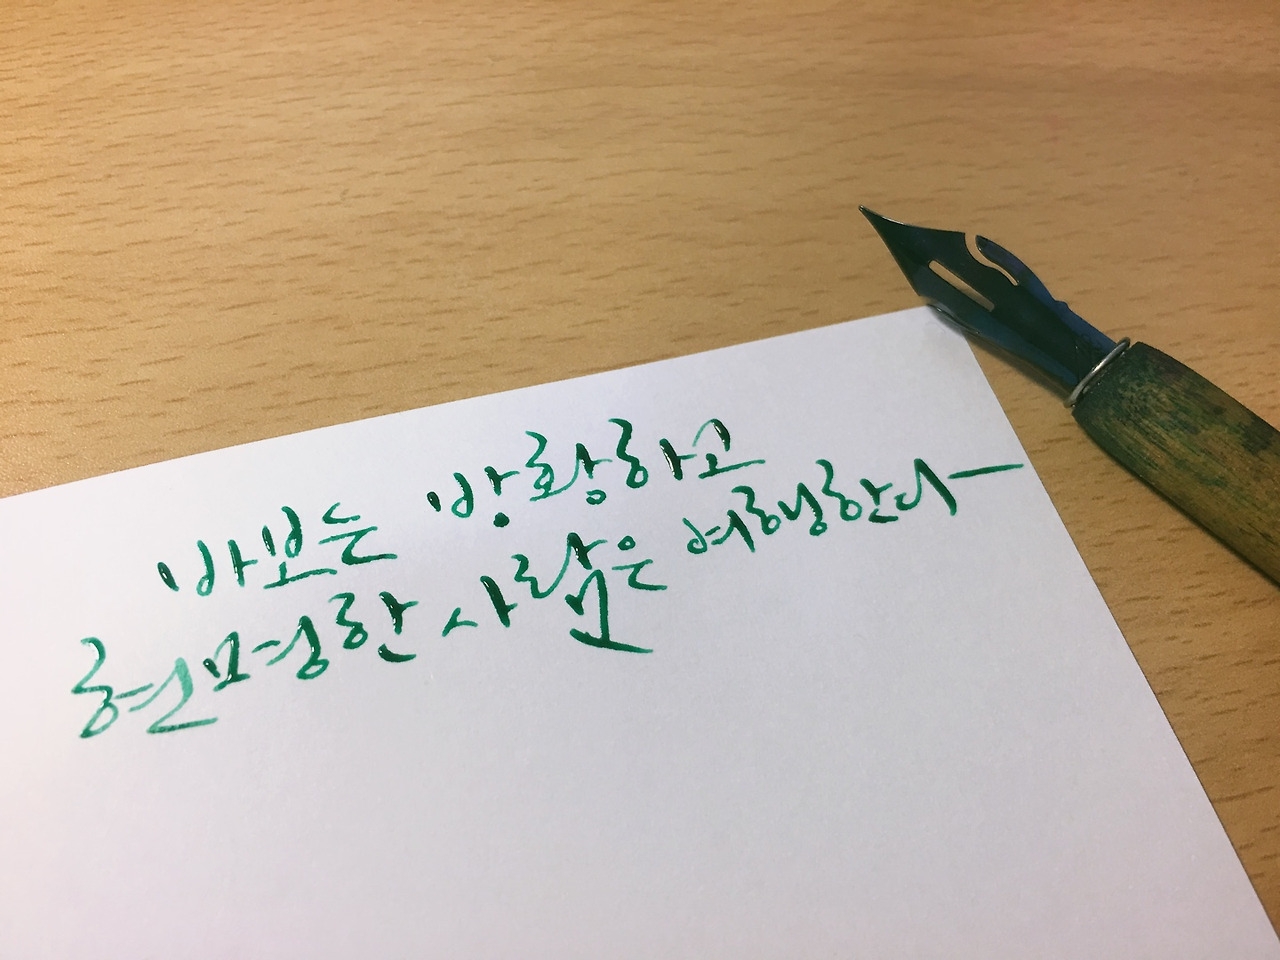 바보는 방황하고
현명한 사람은 여행한다